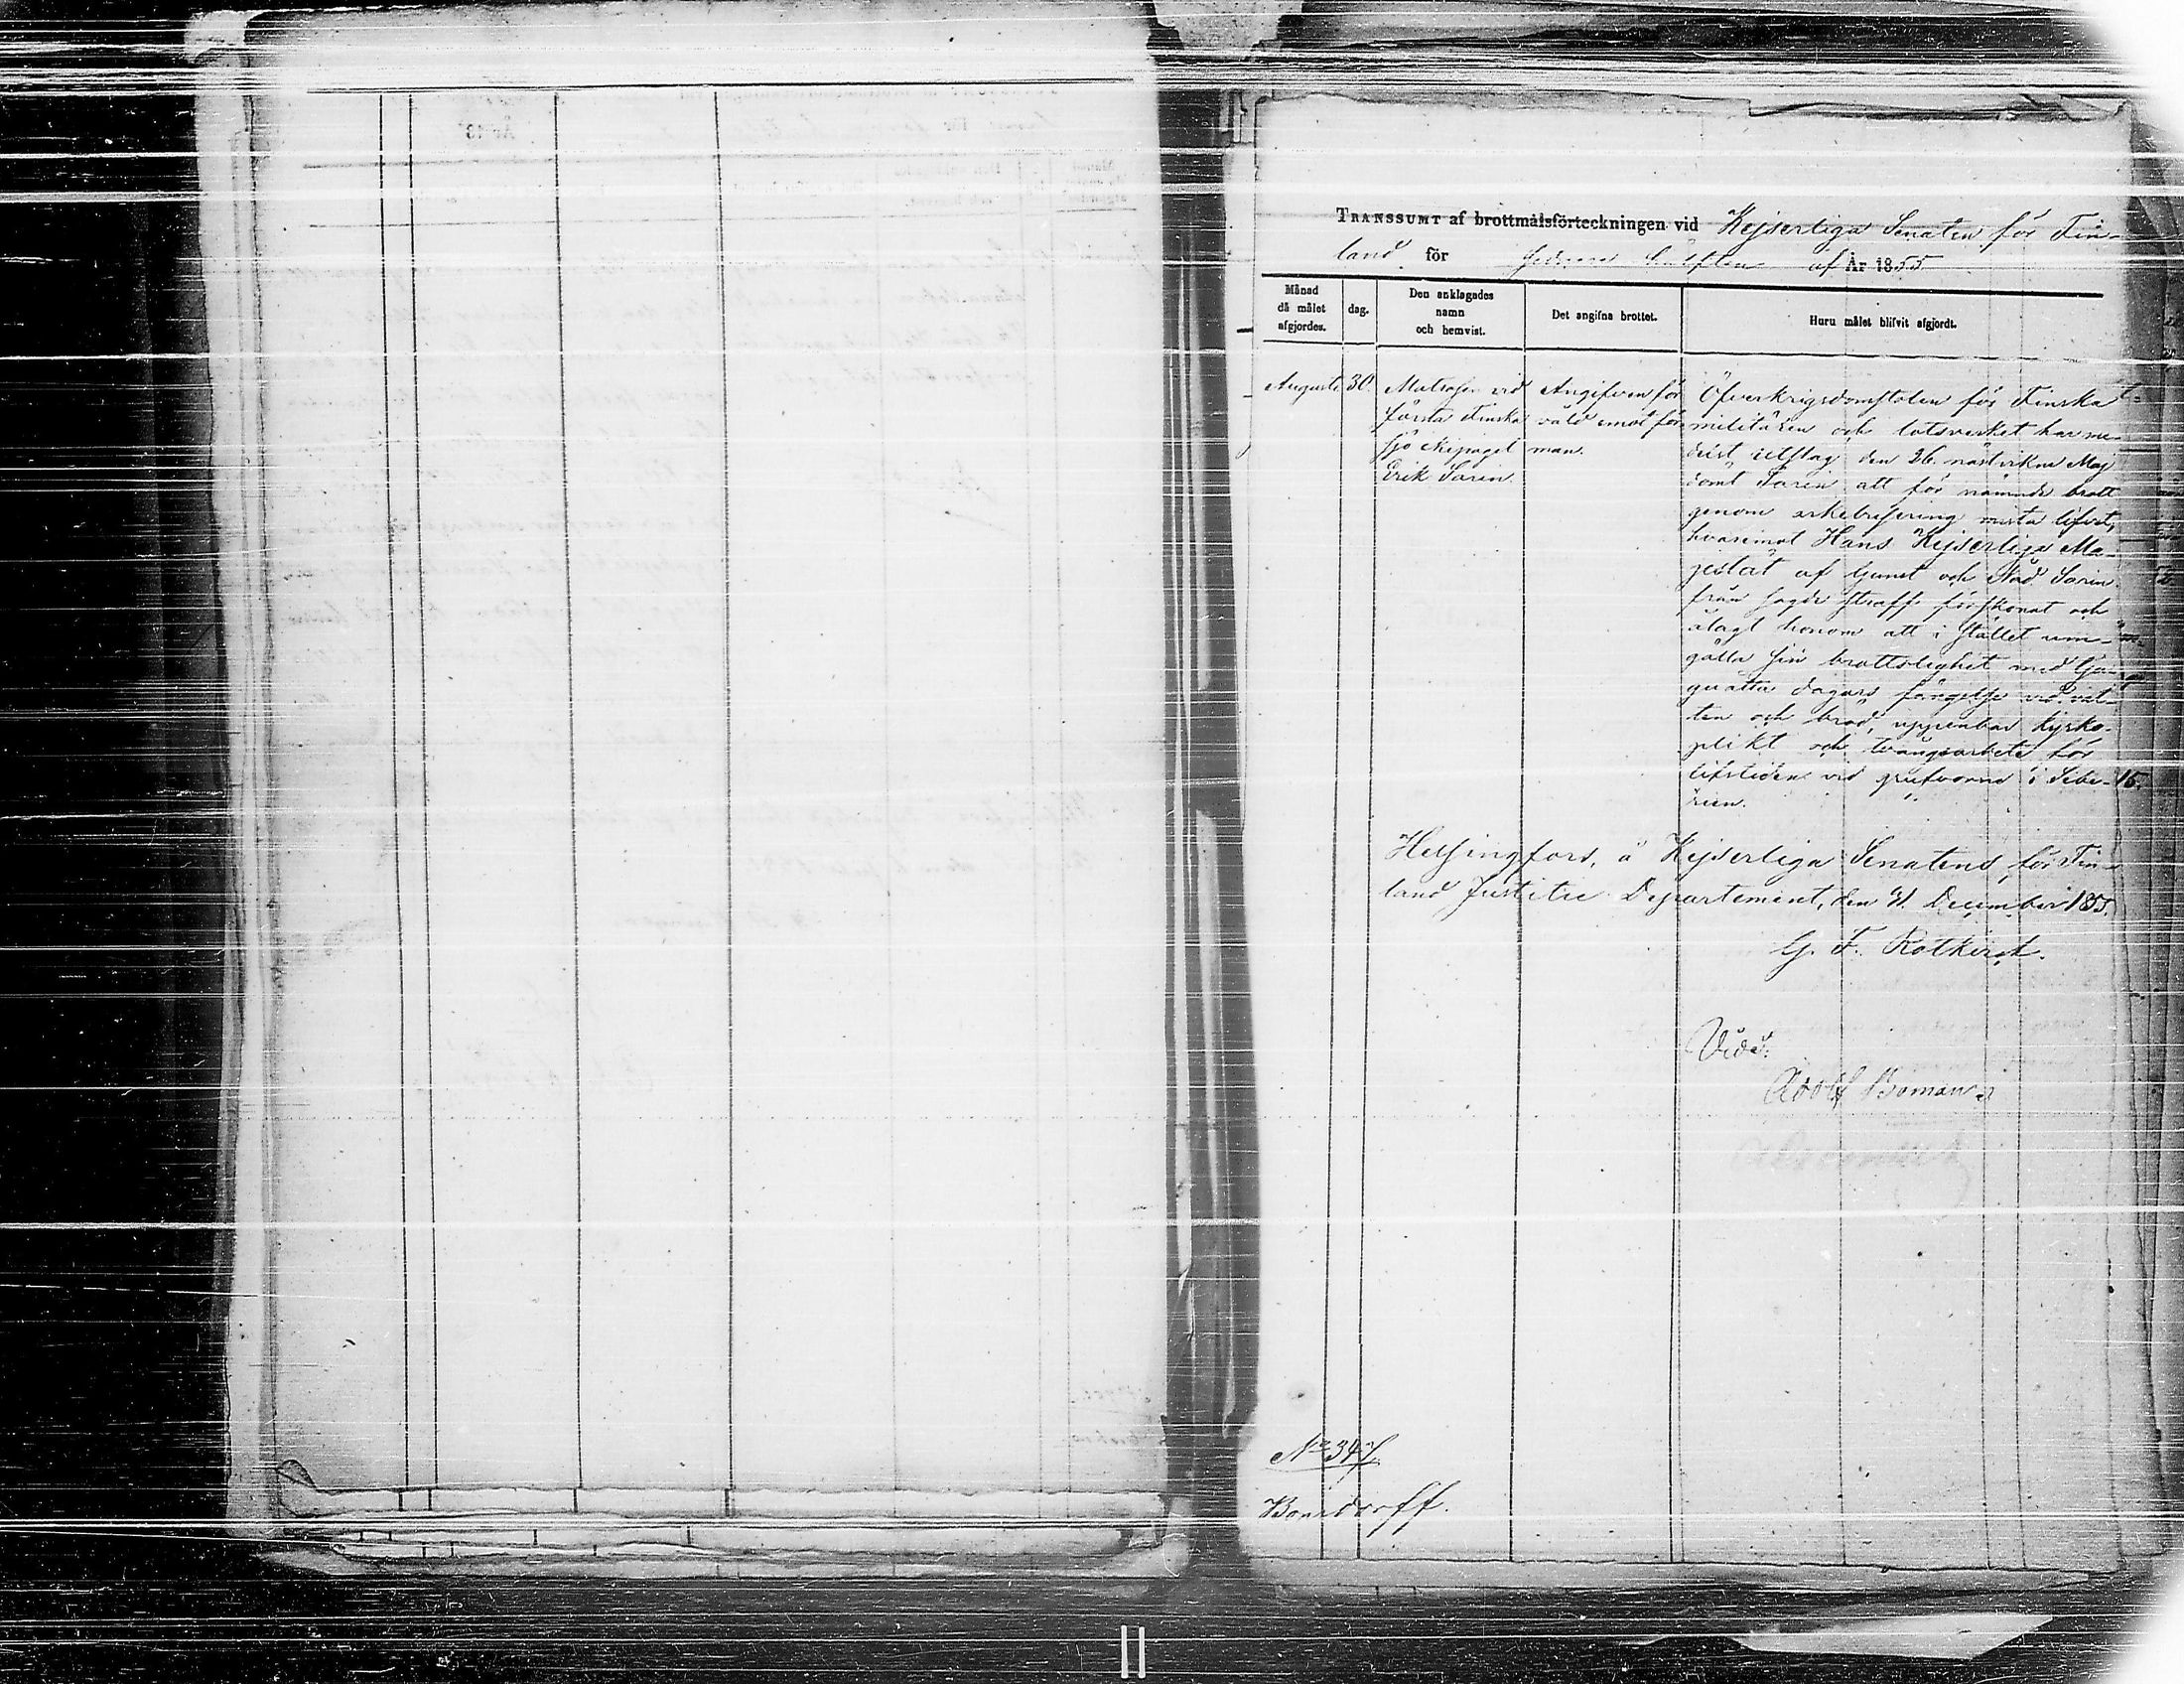 TRANSSUMT af brottmålsförteckningen vid Kejserliga Senaten för Fin-
land för sednare hälften af År 1855
Månad då målet afgjordes.
dag.
Den anklagades namn och hemvist.
Det angifna brottet.
Huru målet blifvit afgjordt.
Augusti
30.
Matrosen vid
första Finska
sjö ekipaget
Erik Sarin.
Angifven för
våld emot för-
man.
Öfverkrigsdomstolen för Finska
militären och lotsverket har me-
delst utslag den 26. nästvikne Maj
dömt Sarin att för nämnde brott
genom arkebusering mista lifvet,
hvaremot Hans Kejserliga Ma-
jestät af Gunst och Nåd Sarin
från sagde straff förskonat och
ålagt honom att i stället um-
gälla sin brottslighet med tju-
guåtta dagars fängelse vid vat-
ten och bröd, uppenbar kyrko-
plikt och tvångsarbete för
lifstiden vid grufvorne i Sibe-
rien.
Helsingfors, å Kejserliga Senatens för Fin-
land Justitie Departement, den 31 December 1855.
G. F. Rotkirch.
Vidi:
Adolf Boman
No 347
Bonsdorff.